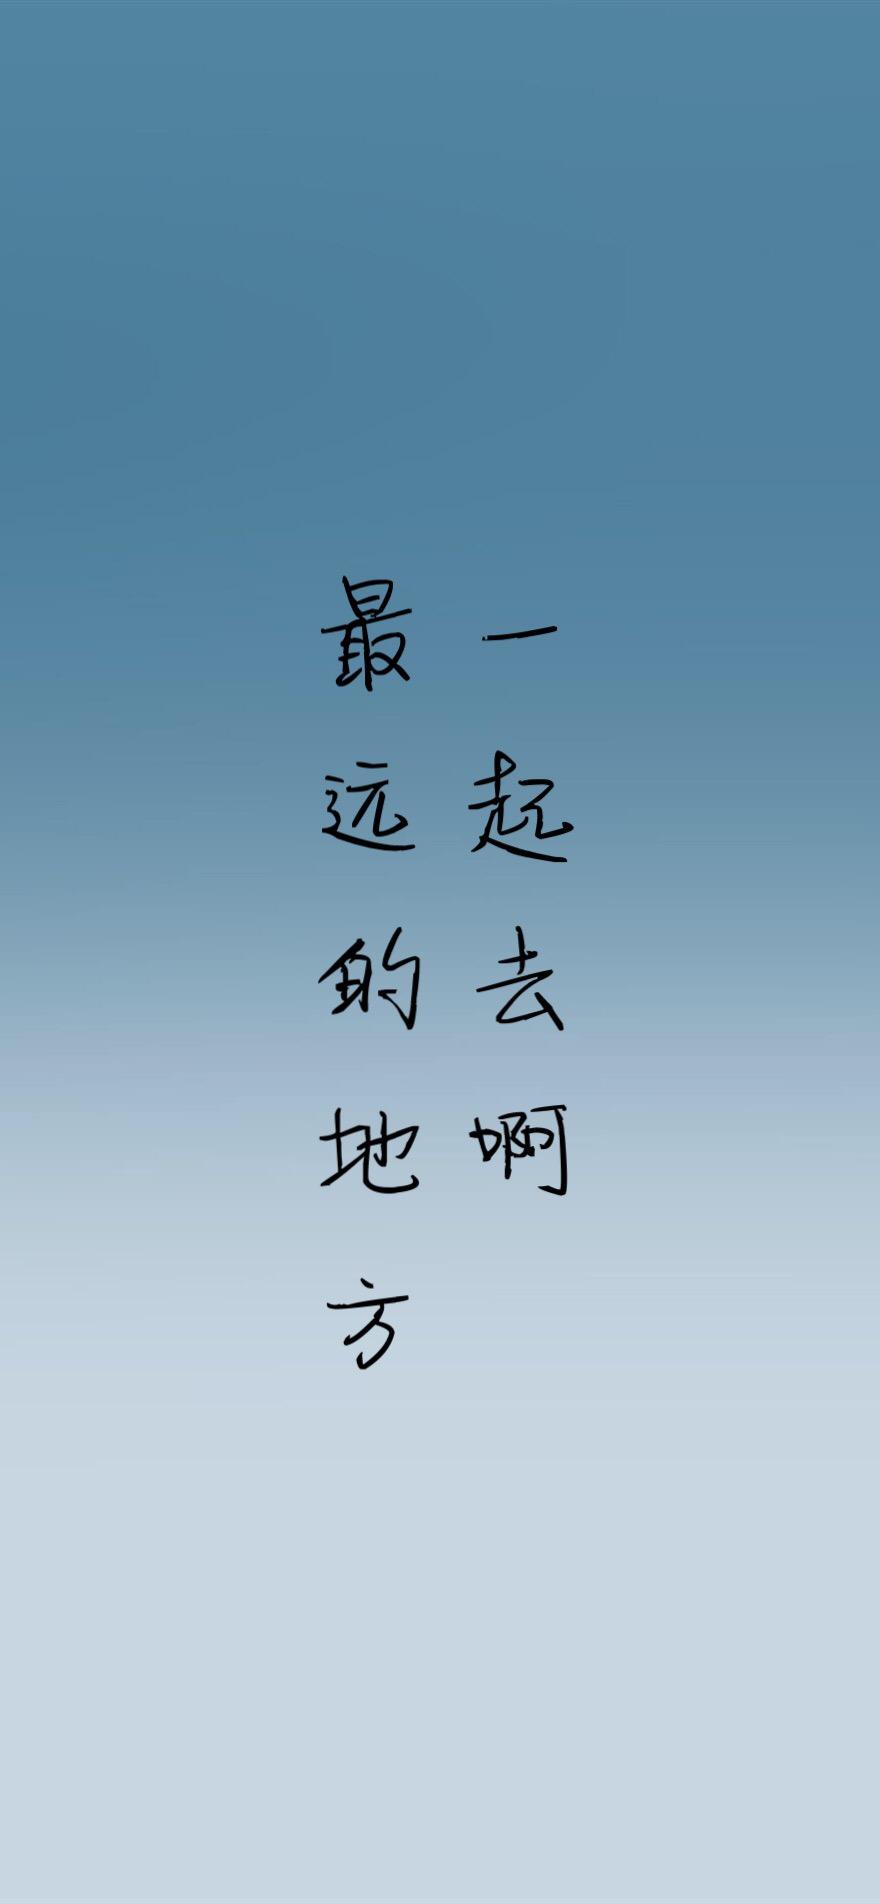 一起去啊
最远的地方